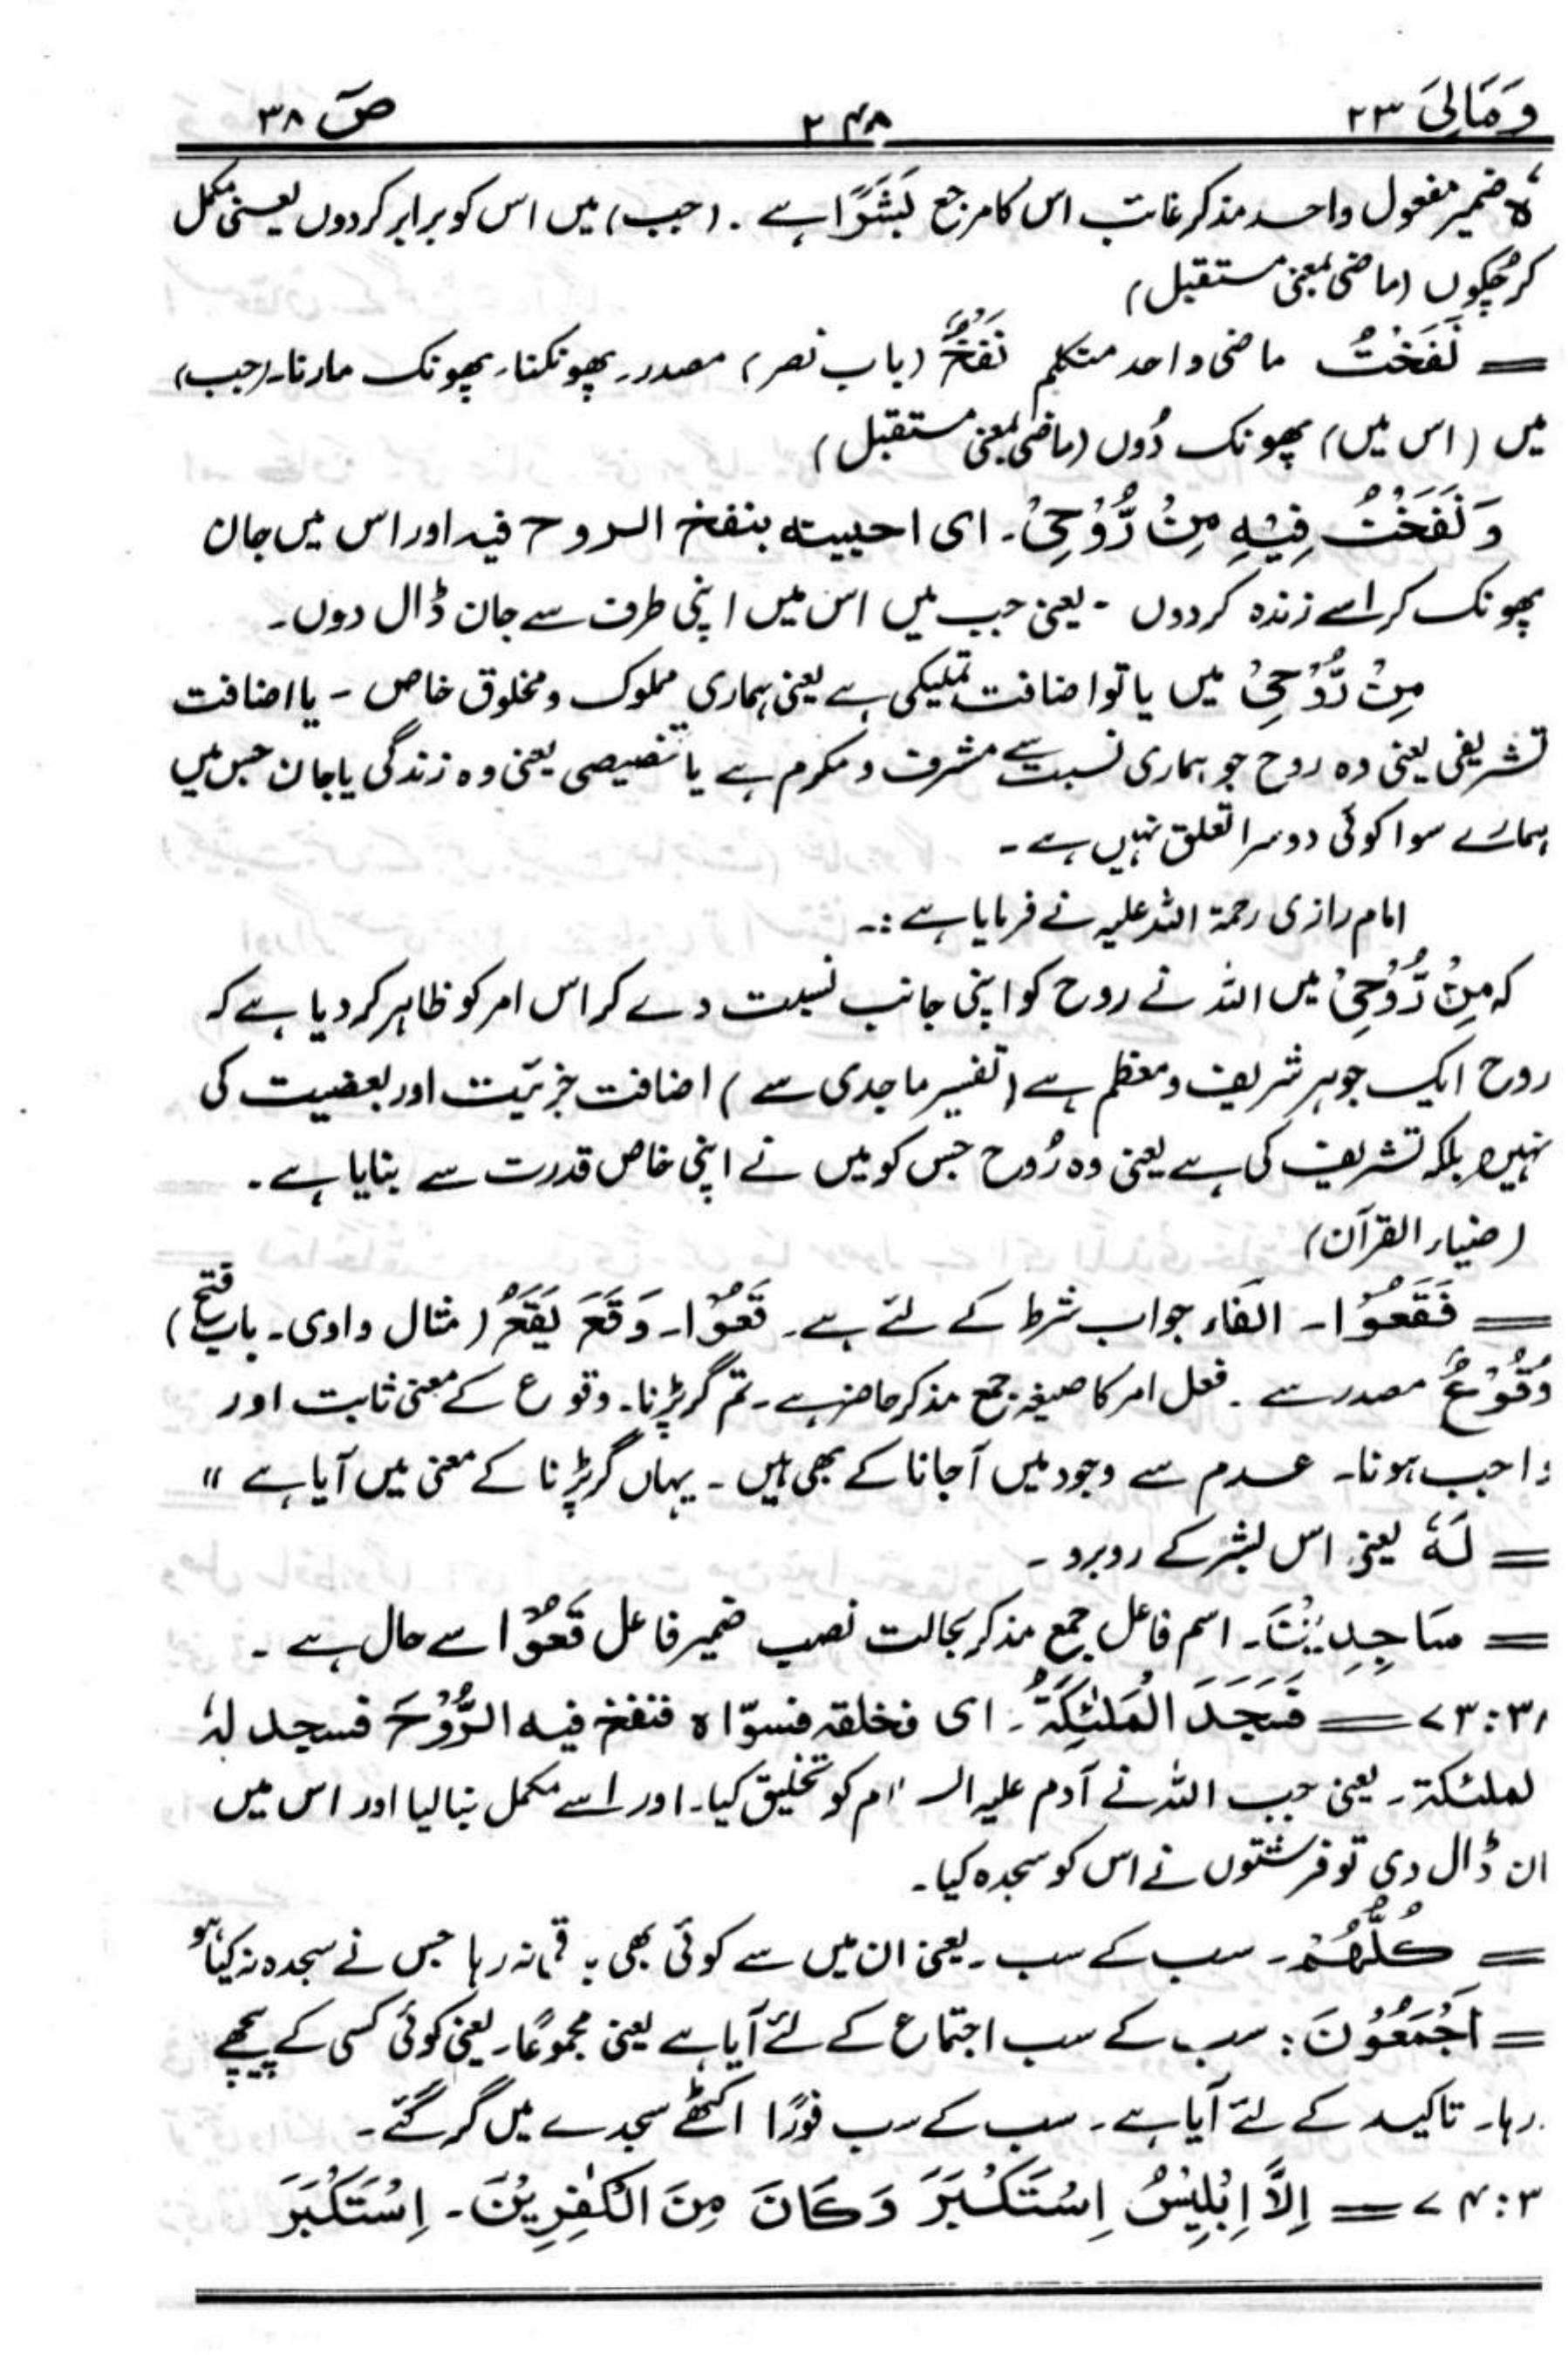 وَمَالِیَ ۲۳ ۲۴۸ صٓ ۳۸
ہٗ ضمیر مفعول واحد مذکر غائب اس کا مرجع بَشَرًا ہے . (جب) میں اس کو برابر کردوں یعنی مکمل
کر چکوں (ماضی بمعنی مستقبل)
= نَفَخْتُ ماضی واحد متکلم نَفْخٌ (باب نصر) مصدر۔ پھونکنا۔ پھونک مارنا۔ (جب)
میں (اس میں) پھونک دُوں (ماضی بمعنی مستقبل)
وَ نَفَخْتُ فِیْہِ مِنْ رُّوْحِیْ۔ ای احییتہ بنفخ الروح فیہ اور اس میں جان
پھونک کر اسے زندہ کردوں - یعنی جب میں اس میں اپنی طرف سے جان ڈال دوں۔
مِنْ رُّوْحِیْ میں یا تو اضافت تملیکی ہے یعنی ہماری مملوک و مخلوق خاص - یا اضافت
تشریفی یعنی وہ روح جو ہماری نسبت سے مشرف و مکرم ہے یا تخصیصی یعنی وہ زندگی یا جان جس میں
ہمارے سوا کوئی دوسرا تعلق نہیں ہے۔
امام رازی رحمۃ اللہ علیہ نے فرمایا ہے :۔
کہ مِنْ رُّوْحِیْ میں اللہ نے روح کو اپنی جانب نسبت دے کر اس امر کو ظاہر کر دیا ہے کہ
روح ایک جوہر شریف و معظم ہے (تفسیر ماجدی سے) اضافت جزئیت اور بعضیت کی
نہیں بلکہ تشریف کی ہے یعنی وہ رُوح جس کو میں نے اپنی خاص قدرت سے بنایا ہے۔
(ضیاء القرآن)
= فَقَعُوْا۔ الفاء جواب شرط کے لئے ہے۔ قَعُوْا۔ وَقَعَ یَقَعُ (مثال واوی۔ باب فتح)
وُقُوْعٌ مصدر سے . فعل امر کا صیغہ جمع مذکر حاضر ہے۔ تم گر پڑنا۔ وقوع کے معنی ثابت اور
واجب ہونا۔ عدم سے وجود میں آجانا کے بھی ہیں۔ یہاں گر پڑنا کے معنی میں آیا ہے ״
= لَہٗ یعنی اس بشر کے روبرو۔
= سَاجِدِیْنَ۔ اسم فاعل جمع مذکر بحالت نصب ضمیر فاعل قَعُوْا سے حال ہے۔
۷۳:۳۸ = فَسَجَدَ الْمَلٰئِکَۃُ۔ ای فخلقہ فسوّاہ فنفخ فیہ الرُّوْحَ فسجد لہٗ
لملئکۃ۔ یعنی جب اللہ نے آدم علیہ السلام کو تخلیق کیا۔ اور اسے مکمل بنالیا اور اس میں
ان ڈال دی تو فرشتوں نے اس کو سجدہ کیا۔
= کُلُّھُمْ۔ سب کے سب۔ یعنی ان میں سے کوئی بھی باقی نہ رہا جس نے سجدہ نہ کیا ہو
= اَجْمَعُوْنَ : سب کے سب اجتماع کے لئے آیا ہے یعنی مجموعًا۔ یعنی کوئی کسی کے پیچھے
رہا۔ تاکید کے لئے آیا ہے۔ سب کے سب فورًا اکٹھے سجدے میں گر گئے۔
۷۴:۳ = اِلَّا اِبْلِیْسُ اِسْتَکْبَرَ وَکَانَ مِنَ الْکٰفِرِیْنَ۔ اِسْتَکْبَرَ